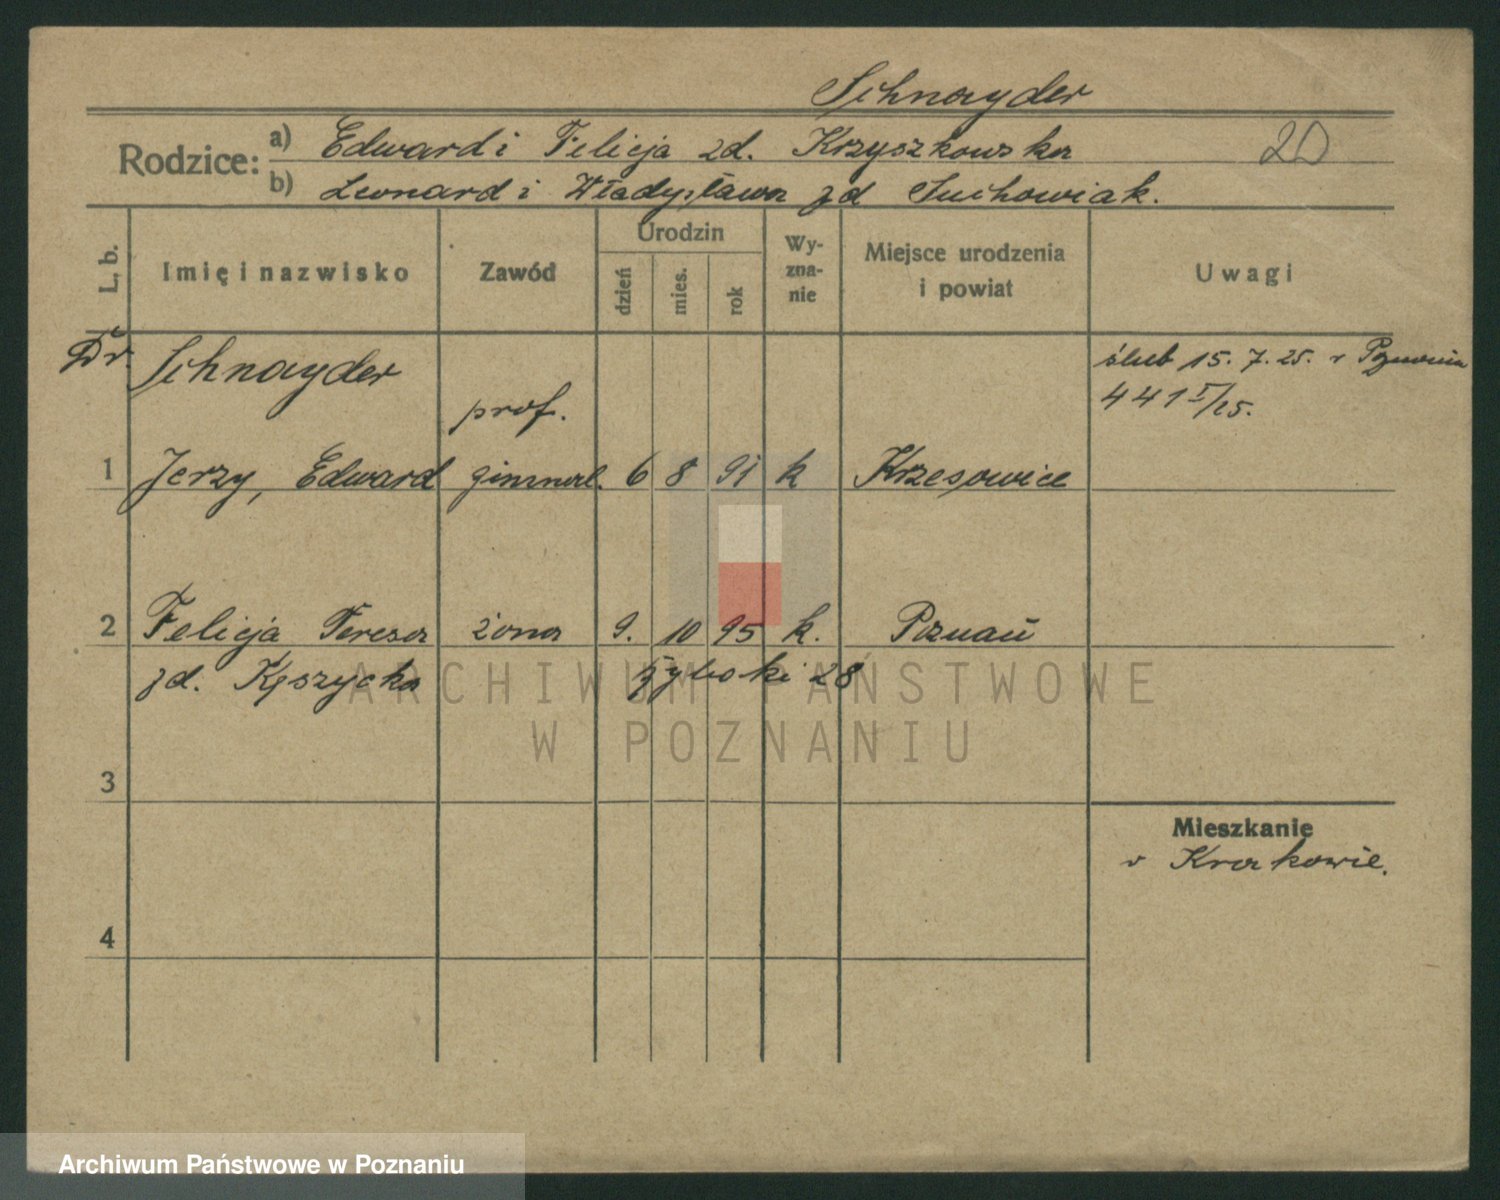 Schnayder
Rodzice: a) Edward i Felicja zd. Krzyszkowska 20
b) Leonard i Władysława zd Suchowiak.
L. b. Imię i nazwisko Zawód Urodzin dzień mies. rok Wy-zna-nie Miejsce urodzenia i powiat Uwagi
Dr. Schnayder ślub 15. 7. 25. v Poznaniu
prof. 441 I/25.
1 Jerzy, Edward gimnazl. 6 8 91 k Krzesowice
2 Felicja Teresa żona 9. 10 95 k. Poznań
zd. Kęszycka 28
3
Mieszkanie
v Krakowie.
4
ARCHIWUM PAŃSTWOWE
W POZNANIU
Archiwum Państwowe w Poznaniu